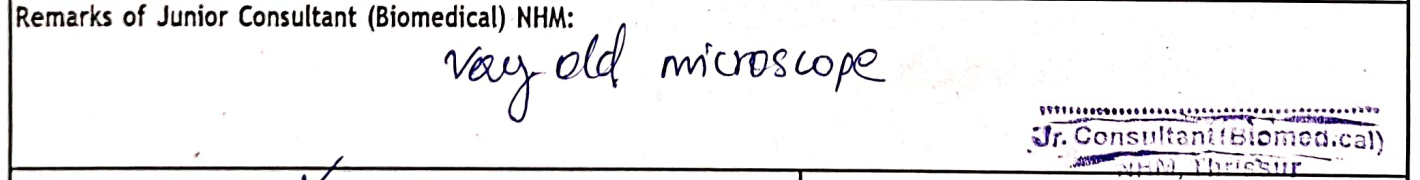 Remarks of Junior Consultant (Biomedical) NHM:
Very old microscope
Jr. Consultant (Biomedical)
NHM, Thrissur